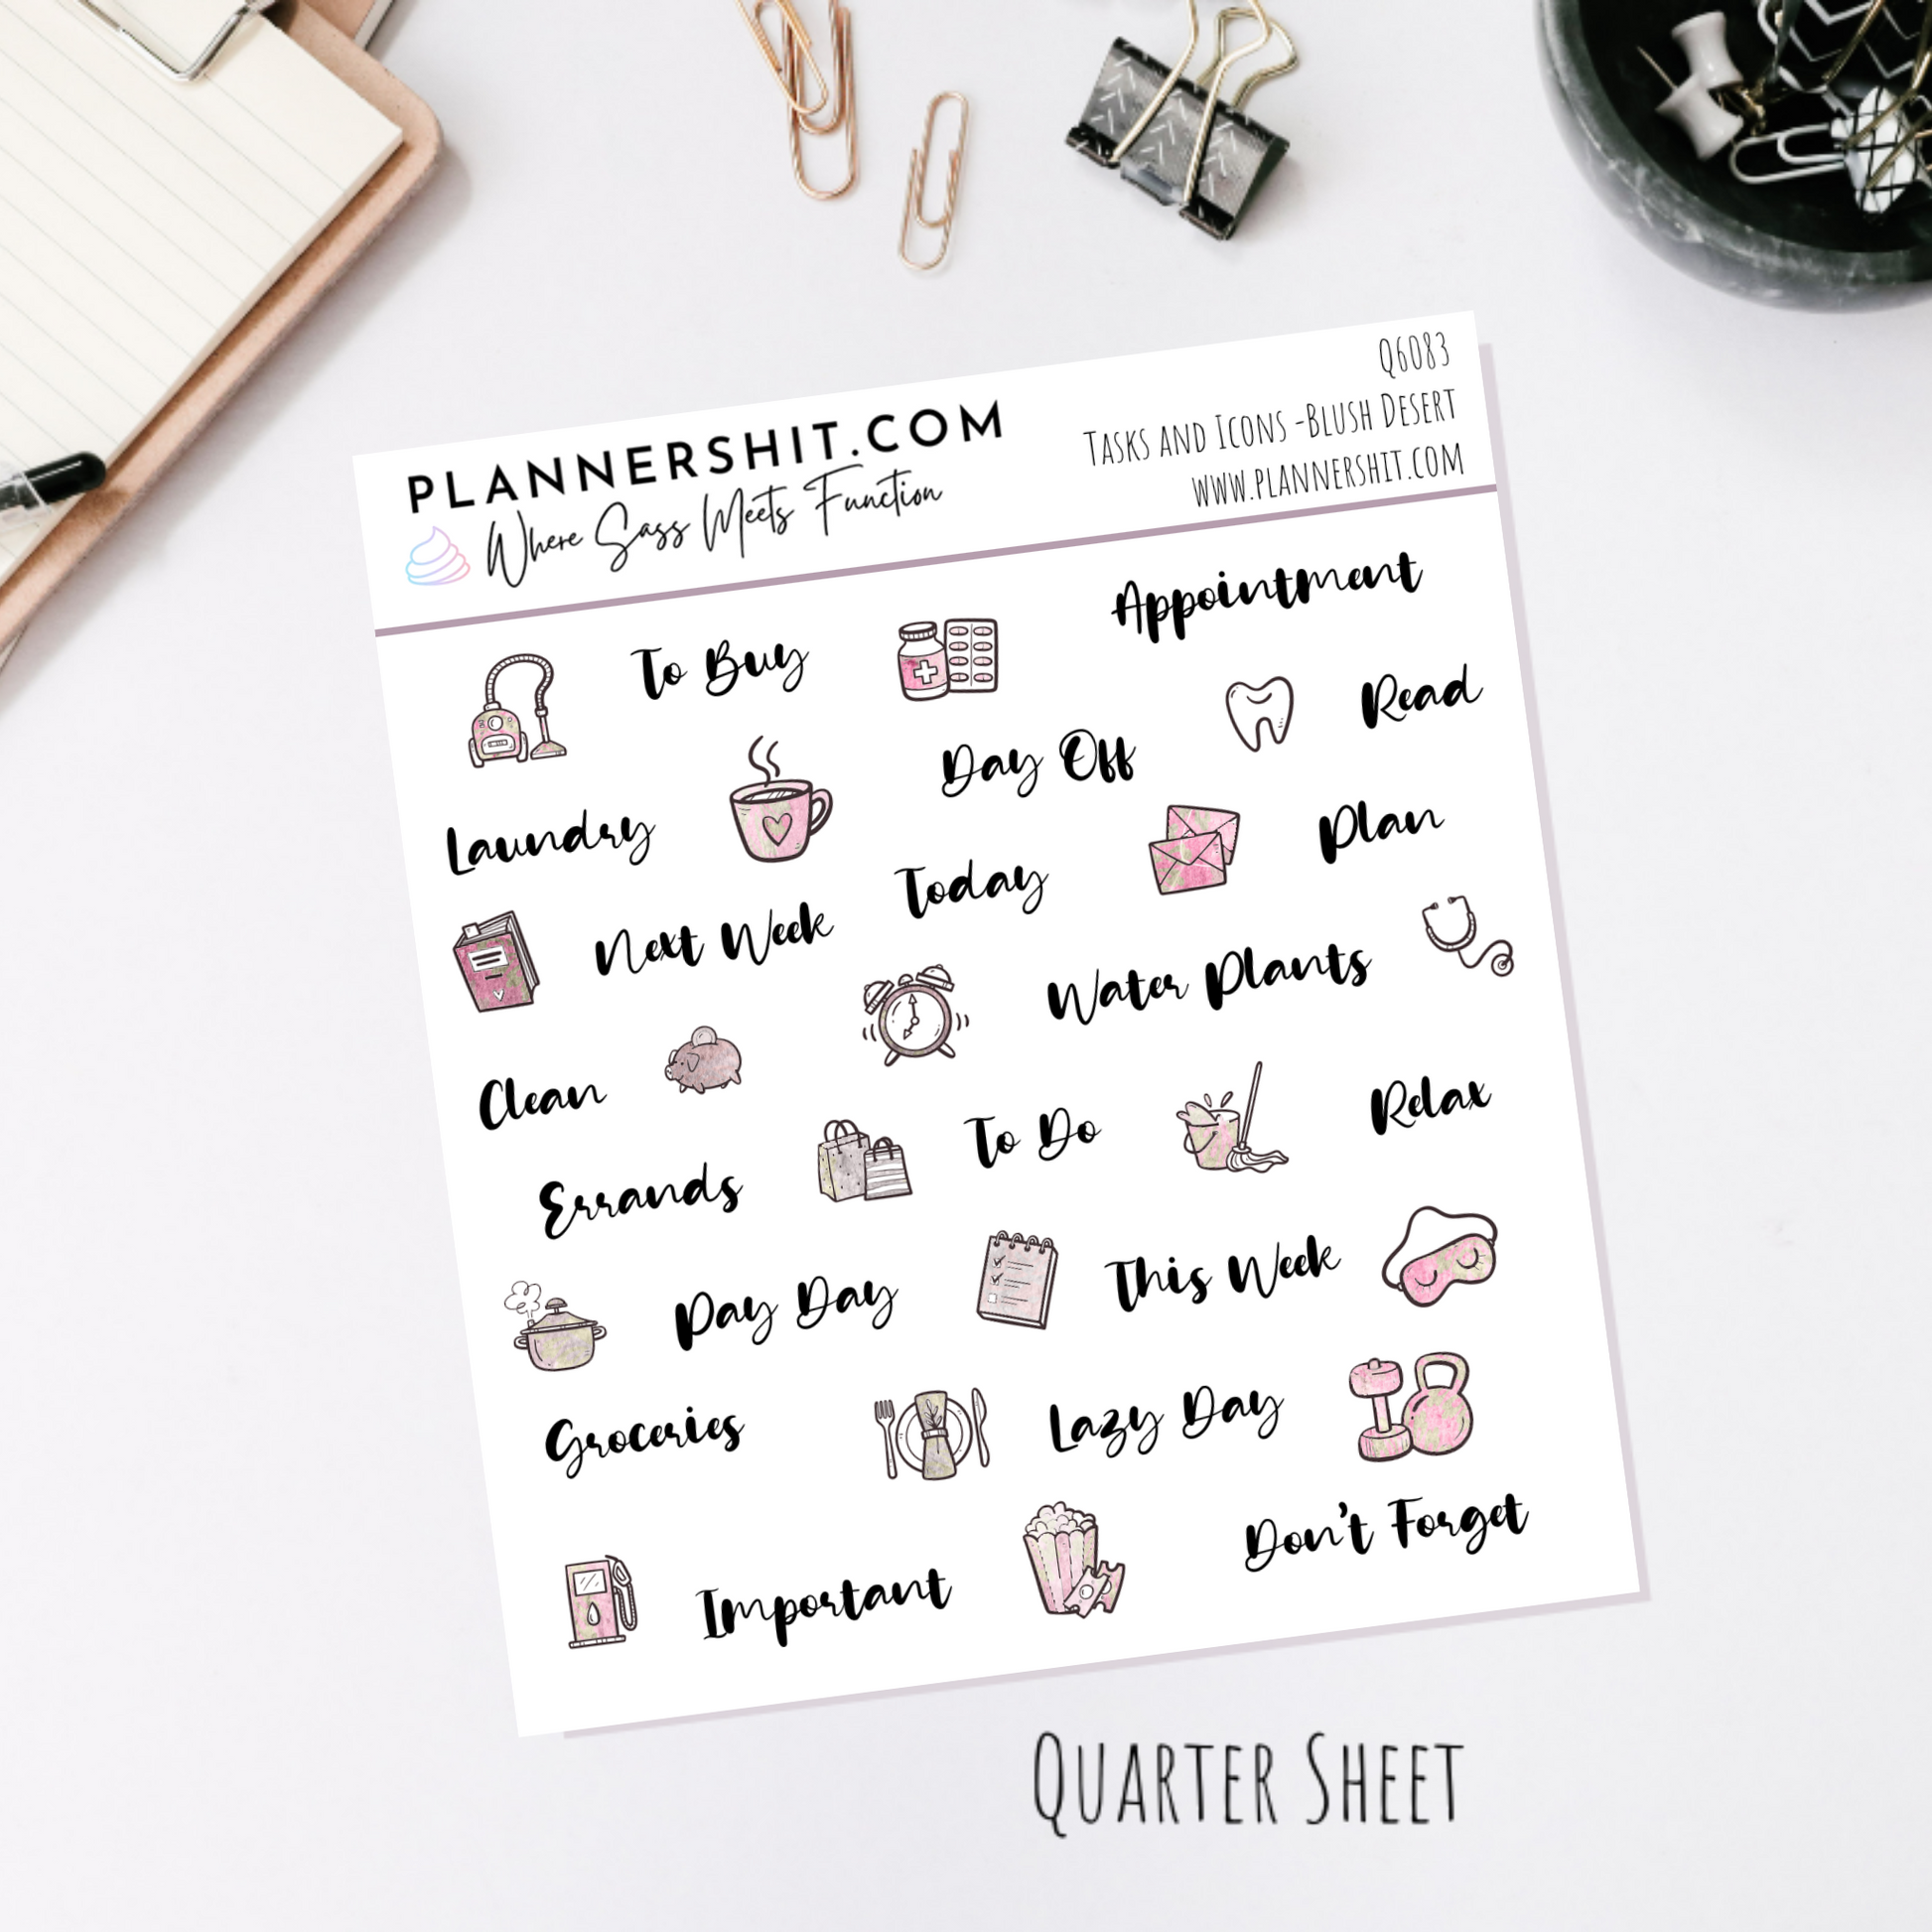 PLANNERSHIT.COM
Where Sass Meets Function
Q6083
Tasks and Icons -Blush Desert
www.plannershit.com
To Buy
Appointment
Read
Day Off
Laundry
Plan
Today
Next Week
Water Plants
Clean
Relax
To Do
Errands
This Week
Pay Day
Lazy Day
Groceries
Don't Forget
Important
Quarter Sheet